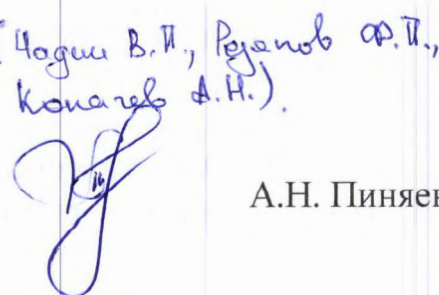 (Чадин В.П., Резапов Ф.П.,
Копачев А.Н.).
А.Н. Пиняев